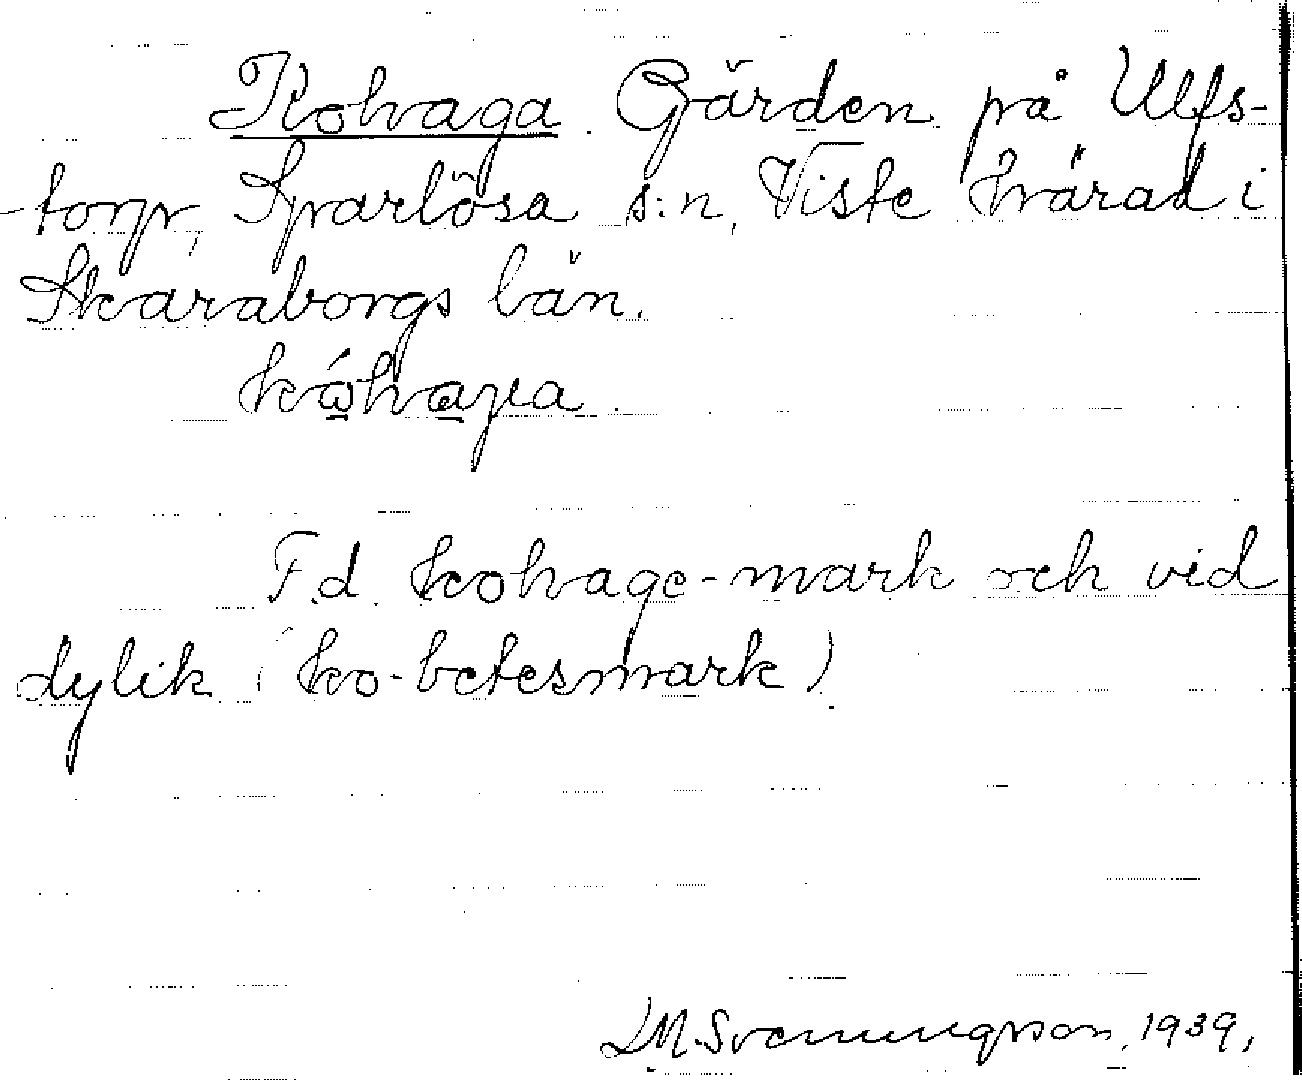 Kohaga. Gärden på Ulfs-
torp, Sparlösa s:n, Viste härad i
Skaraborgs län.
kóhaga.
F.d. kohage-mark och vid
dylik (ko-betesmark).
L M. Svenungsson, 1939,